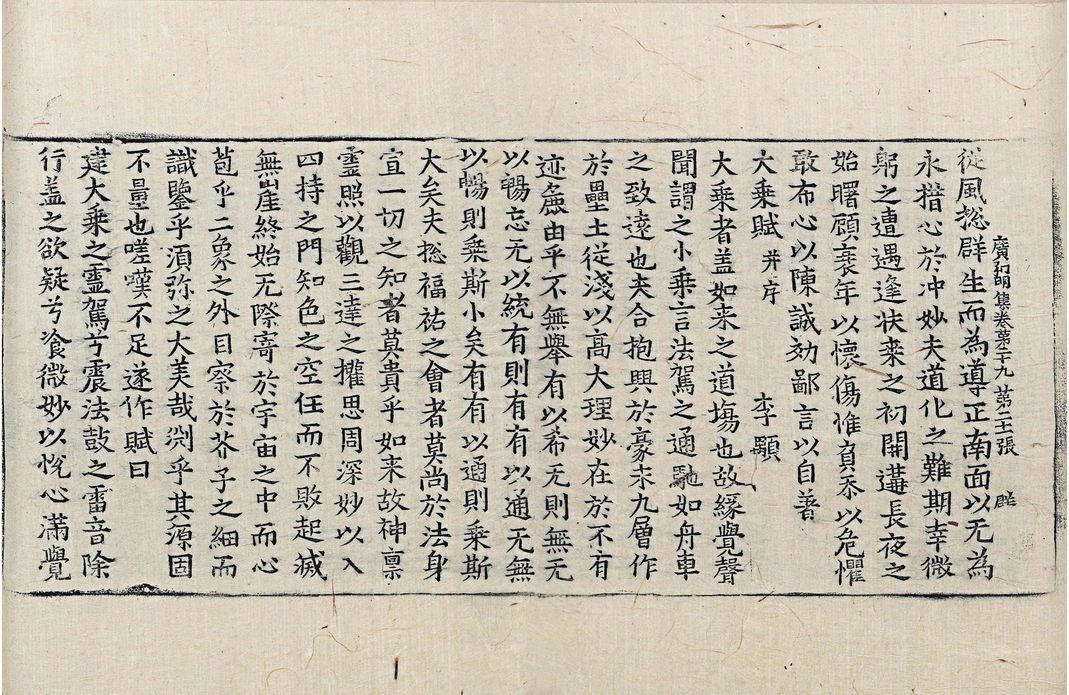 從風揔群生而為導正南面以无為
廣弘明集卷第二十九 第二十七張 群
永措心於沖妙夫道化之難期幸微
躬之遭遇逢扶桒之初開遘長夜之
始曙顧衰年以懷傷惟負忝以危懼
敢布心以陳誠効鄙言以自著
大乘賦 并序 李顒
大乘者盖如来之道塲也故緣覺聲
聞謂之小乗言法駕之通馳如舟車
之致遠也夫合抱興於豪末九層作
於壘土從淺以高大理妙在於不有
迹麁由乎不無舉有以希无則無无
以暢忘无以統有則有有以通无無
以暢則乗斯小矣有有以通則乗斯
大矣夫揔福祐之會者莫尚於法身
宣一切之知者莫貴乎如来故神禀
霊照以觀三達之權思周深妙以入
四持之門知色之空任而不敗起滅
無崖終始无際寄於宇宙之中而心
苞乎二象之外目察於芥子之細而
識鑒乎湏弥之大美哉渕乎其源固
不量也嗟嘆不足遂作賦曰
建大乘之霊駕兮震法鼓之雷音除
行盖之欲疑兮飡微妙以恱心滿覺